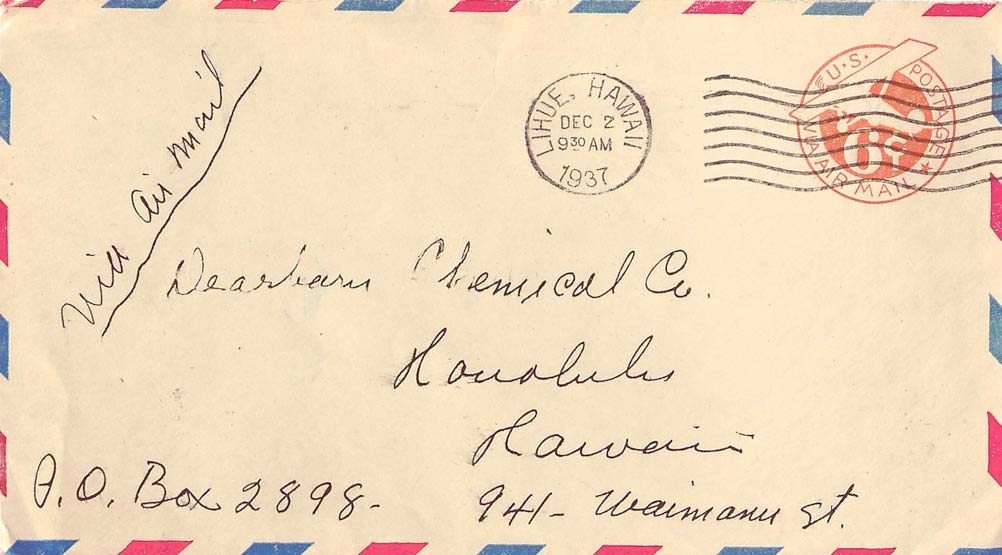 U.S. POSTAGE
6¢
VIA AIR MAIL
LIHUE, HAWAII
DEC 2
9 30 AM
1937
Via air mail
Dearborn Chemical Co.
Honolulu
Hawaii
P.O. Box 2898-
941- Waimanu St.